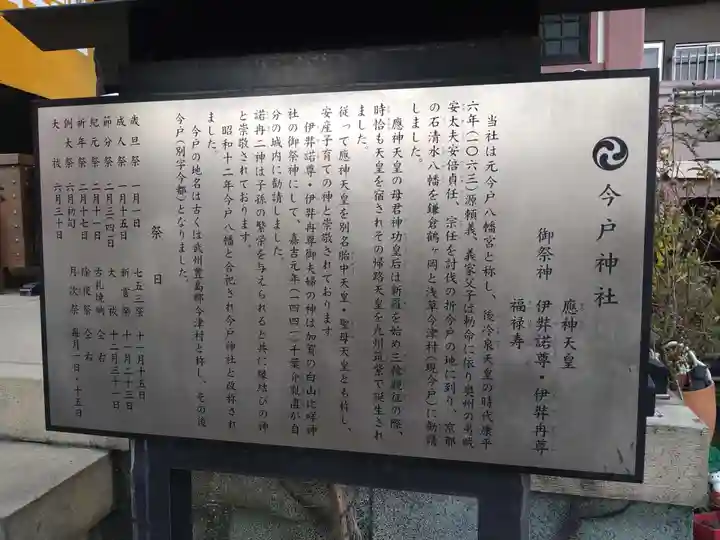 今戸神社
御祭神
應神天皇
伊弉諾尊・伊弉冉尊
福禄寿
当社は元今戸八幡宮と称し、後冷泉天皇の時代康平
六年(一〇六三)源頼義、義家父子は勅命に依り奥州の夷賊
安太夫安倍貞任、宗任を討伐の折今戸の地に到り、京都
の石清水八幡を鎌倉鶴ヶ岡と浅草今津村(現今戸)に勧請
しました。
應神天皇の母君神功皇后は新羅を始め三韓親征の際、
時恰も天皇を宿されその帰路天皇を九州筑紫で誕生され
ました。
従って應神天皇を別名胎中天皇・聖母天皇とも称し、
安産子育ての神と崇敬されております
伊弉諾尊・伊弉冉尊御夫婦の神は加賀の白山比咩神
社の御祭神にして、嘉吉元年(一四四一)千葉介胤直が自
分の城内に勧請しました。
諾冉二神は子孫の繁栄を与えられると共に縁結びの神
と崇敬されております。
昭和十二年今戸八幡と合祀され今戸神社と改称され
ました。
今戸の地名は古くは武州豊島郡今津村と称し、その後
今戸(別字今都)となりました。
祭日
歳旦祭 一月一日
成人祭 一月十五日
節分祭 二月三・四日
紀元祭 二月十一日
祈年祭 二月十七日
例大祭 六月初旬
大祓 六月三十日
七五三祭 十一月十五日
新嘗祭 十一月二十三日
大祓 十二月三十一日
古札焼納 仝右
除夜祭 仝右
月次祭 毎月一日・十五日